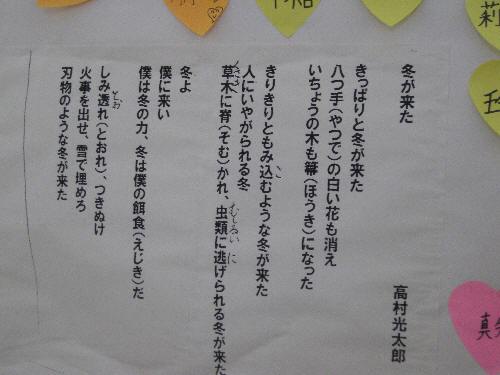 冬が来た
高村光太郎
きっぱりと冬が来た
八つ手(やつで)の白い花も消え
いちょうの木も箒(ほうき)になった
きりきりともみ込むような冬が来た
こ
人にいやがられる冬
草木に脊(そむ)かれ、虫類に逃げられる冬が来た
くさき
むしるい に
冬よ
僕に来い
僕は冬の力、冬は僕の餌食(えじき)だ
しみ透れ(とおれ)、つきぬけ
とお
火事を出せ、雪で埋めろ
刃物のような冬が来た
莉
真